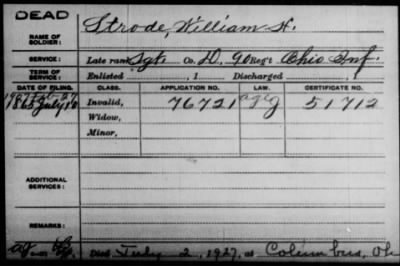 DEAD
Strode, William H.
NAME OF SOLDIER:
SERVICE: Late rank Sgt. Co. D, 90 Reg't Ohio Inf.
TERM OF SERVICE: Enlisted , 1 Discharged , 1
DATE OF FILING. CLASS. APPLICATION NO. LAW. CERTIFICATE NO.
1907 Feb. 27
1865 July 10 Invalid, 76721 51712
Widow,
Minor,
ADDITIONAL SERVICES:
REMARKS:
Died July 2, 1927, at Columbus, Oh